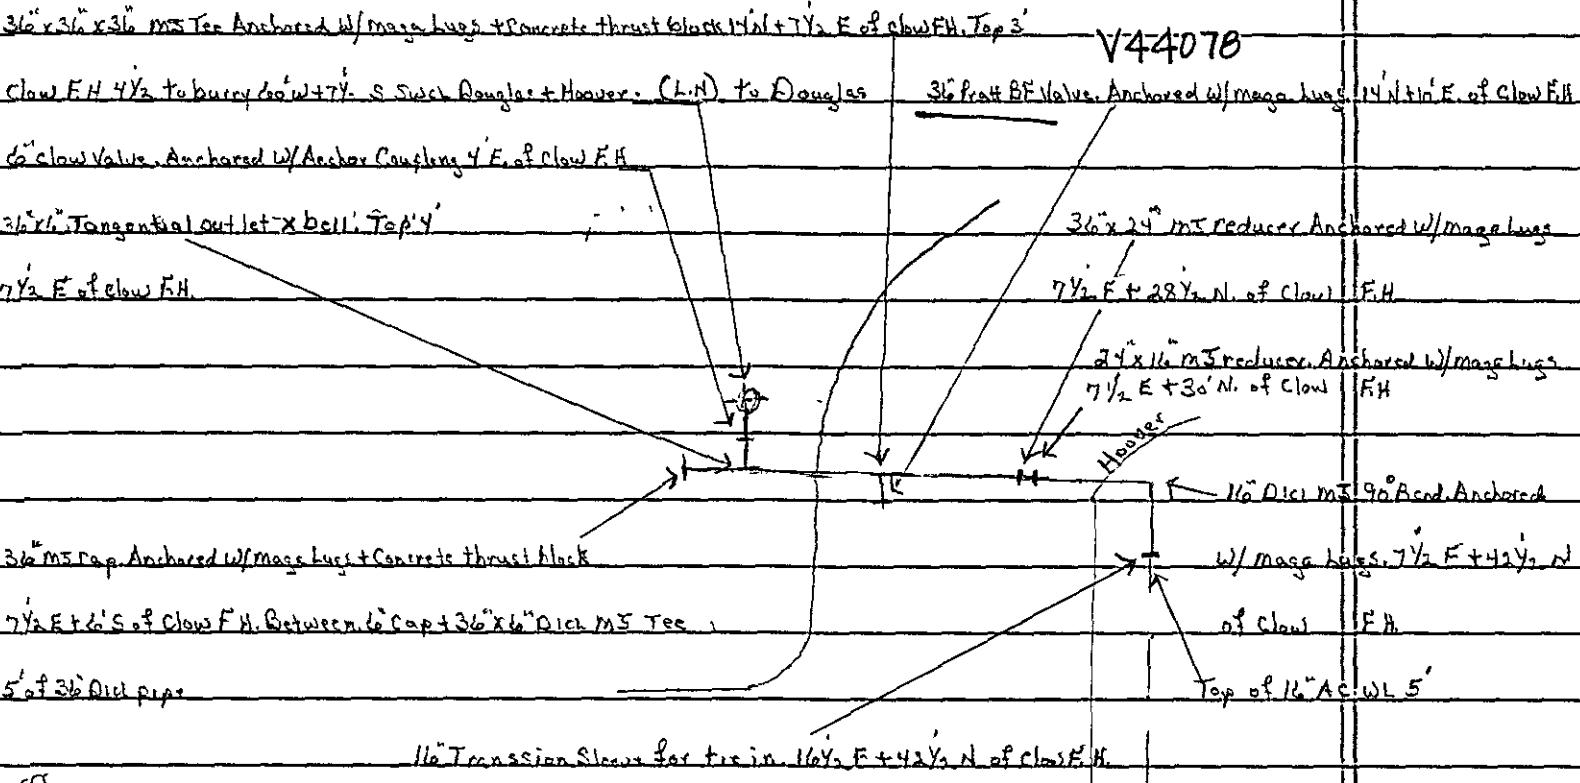 36"x36"x36" MJ Tee Anchored W/ maga Lugs + Concrete thrust block 14'N + 7 1/2' E of Clow F.H. Top 3'
V44078
Clow F.H 4 1/2' to burry 60'W + 7 1/2' S Swcl Douglas + Hoover. (L.N) to Douglas
36" Pratt BF Valve. Anchored W/ maga Lugs. 14'N + 10'E. of Clow F.H
6" Clow Valve. Anchored W/ Anchor Coupleng 4' E. of Clow F.H
36"x6" Tangential outlet X bell. Top 4'
7 1/2' E of Clow F.H.
36"x 24" MJ reducer Anchored W/ maga Lugs
7 1/2' E + 28 1/2' N. of Clow F.H
24"x16" MJ reducer. Anchored W/ maga Lugs
7 1/2' E + 30' N. of Clow F.H
Hoover
16" DICI MJ 90° Bend. Anchored
W/ maga Lugs. 7 1/2' E + 42 1/2' N
of Clow F.H.
36" MJ Cap. Anchored W/ maga Lugs + Concrete thrust block
7 1/2' E + 6' S of Clow F.H. Between 6" Cap + 36"x6" DICI MJ Tee
5' of 36" DICI pipe
Top of 16" AC WL 5'
16" Transsion Sleeve for tie in. 16 1/2' E + 42 1/2' N of Clow F.H.